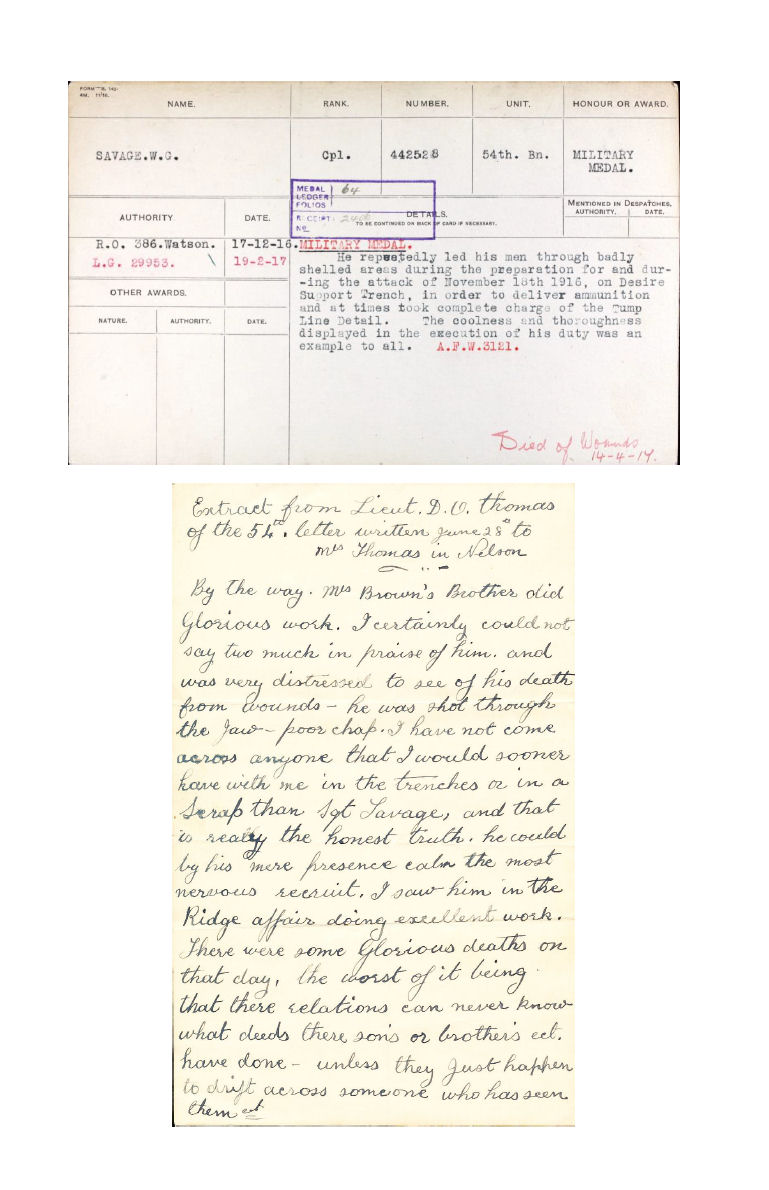 FORM
NAME.
RANK.
NUMBER.
UNIT.
HONOUR OR AWARD.
SAVAGE.W.G.
Cpl.
442528
54th. Bn.
MILITARY
MEDAL.
MEDAL
LEDGER
FOLIOS
64
RECEIPT
No.
AUTHORITY
DATE.
DETAILS.
TO BE CONTINUED ON BACK OF CARD IF NECESSARY.
MENTIONED IN DESPATCHES.
AUTHORITY.
DATE.
R.O. 386.Watson.
17-12-16.
MILITARY MEDAL.
L.G. 29953. \
19-2-17
He repeatedly led his men through badly
shelled areas during the preparation for and dur-
-ing the attack of November 18th 1916, on Desire
Support Trench, in order to deliver ammunition
and at times took complete charge of the Tump
Line Detail. The coolness and thoroughness
displayed in the execution of his duty was an
example to all. A.F.W.3121.
OTHER AWARDS.
NATURE.
AUTHORITY.
DATE.
Died of Wounds
14-4-17.
Extract from Lieut. D.O. Thomas
of the 54th. letter written June 28th to
Mrs Thomas in Nelson
By the way. Mrs Brown's Brother did
Glorious work. I certainly could not
say two much in praise of him. and
was very distressed to see of his death
from wounds – he was shot through
the Jaw – poor chap. I have not come
across anyone that I would sooner
have with me in the trenches or in a
Scrap than Sgt Savage, and that
is really the honest truth. he could
by his mere presence calm the most
nervous recruit. I saw him in the
Ridge affair doing excellent work.
There were some Glorious deaths on
that day, the worst of it being
that there relations can never know
what deeds there son's or brother's ect.
have done – unless they Just happen
to drift across someone who has seen
them ect